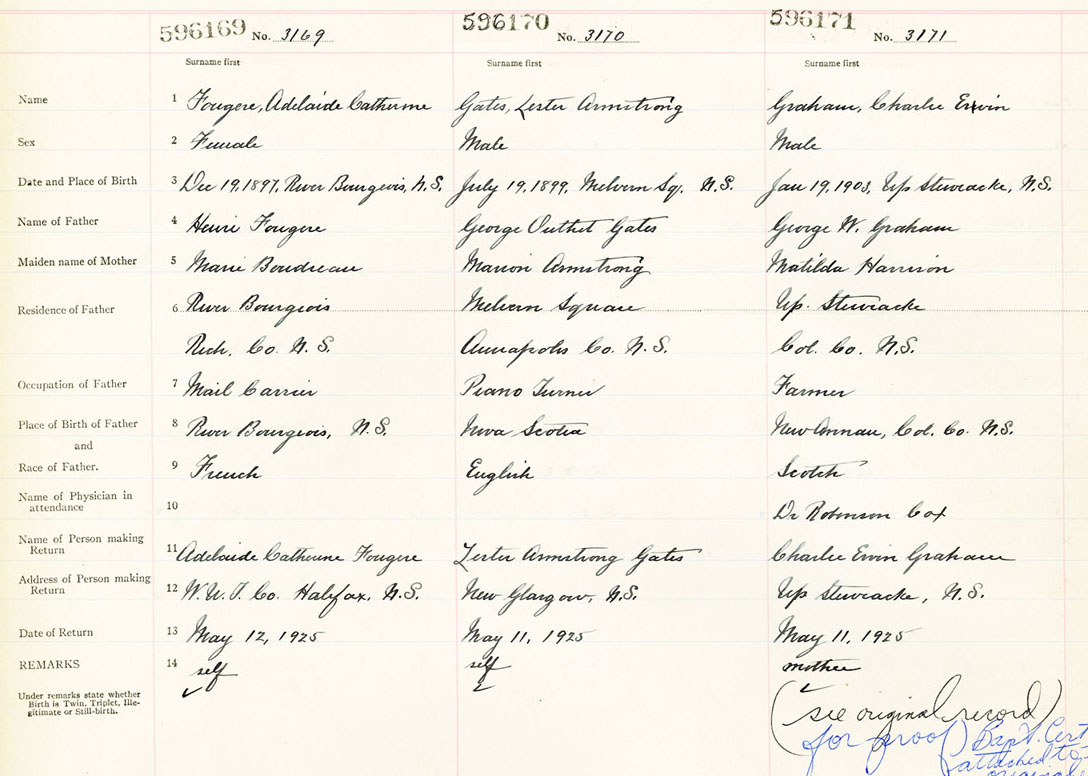 596169 No. 3169 596170 No. 3170 596171 No. 3171
Surname first Surname first Surname first
Name 1 Fougere, Adelaide Catherine Gates, Lester Armstrong Graham, Charlie Ervin
Sex 2 Female Male Male
Date and Place of Birth 3 Dec 19, 1897, River Bourgeois, N.S. July 19, 1899, Melvern Sq. N.S. Jan 19, 1903, Up Stewiacke, N.S.
Name of Father 4 Henri Fougere George Outhit Gates George W. Graham
Maiden name of Mother 5 Marie Boudreau Marion Armstrong Matilda Harrison
Residence of Father 6 River Bourgeois Melvern Square Up. Stewiacke
Rich. Co. N.S. Annapolis Co. N.S. Col. Co. N.S.
Occupation of Father 7 Mail Carrier Piano Turner Farmer
Place of Birth of Father 8 River Bourgeois, N.S. Nova Scotia New Annan, Col. Co. N.S.
and
Race of Father. 9 French English Scotch
Name of Physician in
attendance 10 Dr Robinson Cox
Name of Person making
Return 11 Adelaide Catherine Fougere Lester Armstrong Gates Charlie Ervin Graham
Address of Person making
Return 12 W.U.T. Co. Halifax, N.S. New Glasgow, N.S. Up Stewiacke, N.S.
Date of Return 13 May 12, 1925 May 11, 1925 May 11, 1925
REMARKS 14 self self mother
Under remarks state whether
Birth is Twin, Triplet, Ille-
gitimate or Still-birth.
(see original record)
for proof) Bapt. Cert
attached to
original